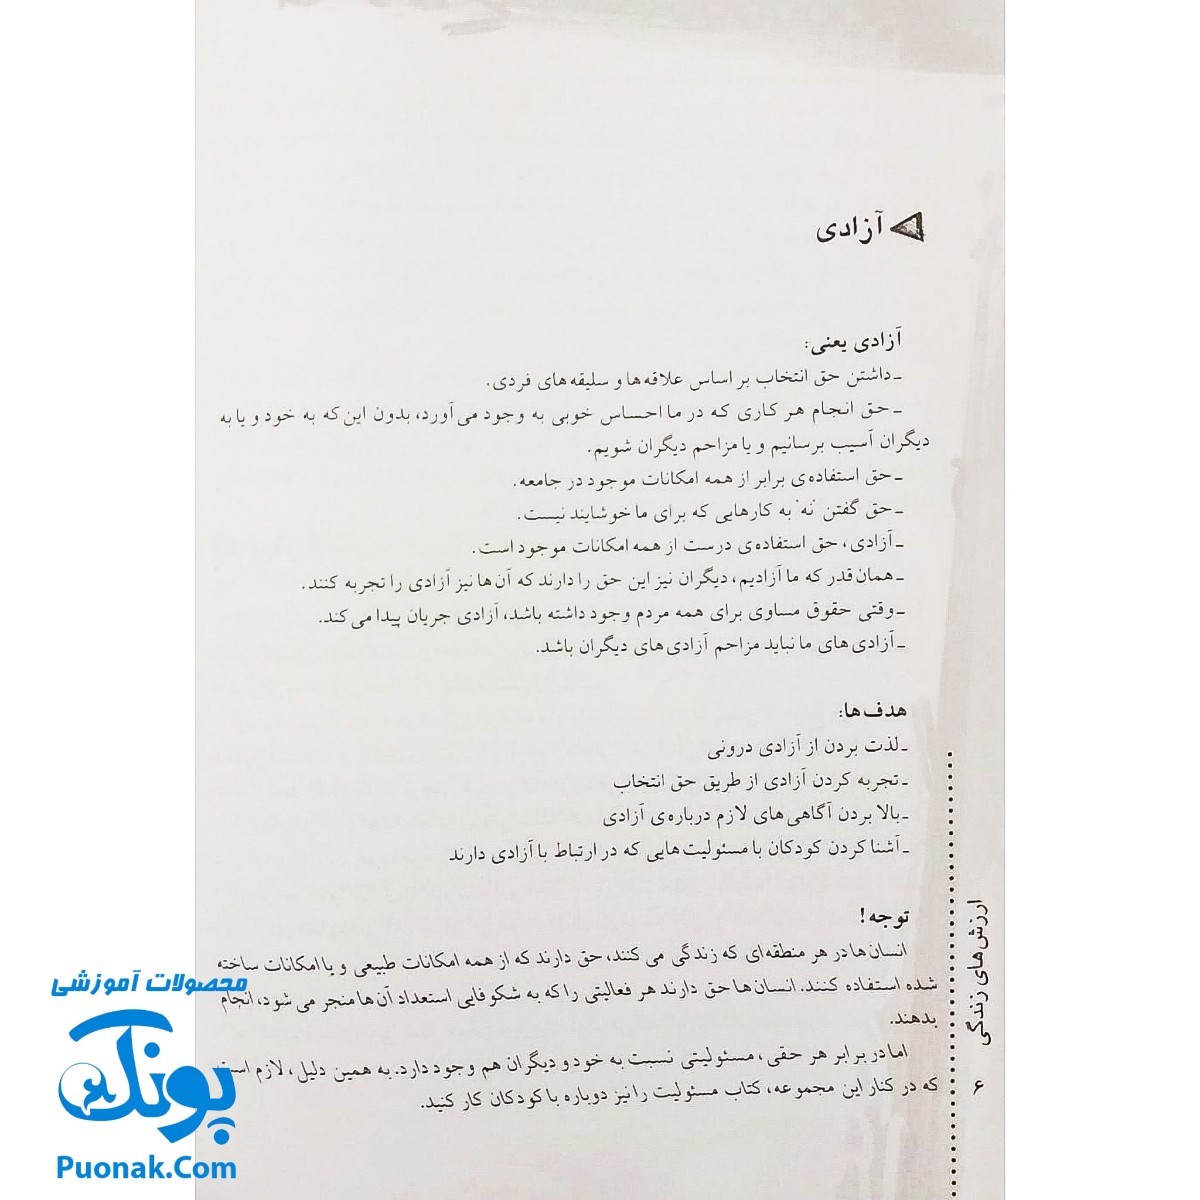 آزادی
آزادی یعنی:
ـ داشتن حق انتخاب بر اساس علاقه‌ها و سلیقه‌های فردی.
ـ حق انجام هر کاری که در ما احساس خوبی به وجود می‌آورد، بدون این‌که به خود و یا به
دیگران آسیب برسانیم و یا مزاحم دیگران شویم.
ـ حق استفاده‌ی برابر از همه امکانات موجود در جامعه.
ـ حق گفتن "نه" به کارهایی که برای ما خوشایند نیست.
ـ آزادی، حق استفاده‌ی درست از همه امکانات موجود است.
ـ همان قدر که ما آزادیم، دیگران نیز این حق را دارند که آن‌ها نیز آزادی را تجربه کنند.
ـ وقتی حقوق مساوی برای همه مردم وجود داشته باشد، آزادی جریان پیدا می‌کند.
ـ آزادی‌های ما نباید مزاحم آزادی‌های دیگران باشد.
هدف‌ها:
ـ لذت بردن از آزادی درونی
ـ تجربه کردن آزادی از طریق حق انتخاب
ـ بالا بردن آگاهی‌های لازم درباره‌ی آزادی
ـ آشنا کردن کودکان با مسئولیت‌هایی که در ارتباط با آزادی دارند
توجه!
انسان‌ها در هر منطقه‌ای که زندگی می‌کنند، حق دارند که از همه امکانات طبیعی و یا امکانات ساخته
شده استفاده کنند. انسان‌ها حق دارند هر فعالیتی را که به شکوفایی استعداد آن‌ها منجر می‌شود، انجام
بدهند.
اما در برابر هر حقی، مسئولیتی نسبت به خود و دیگران هم وجود دارد. به همین دلیل، لازم است
که در کنار این مجموعه، کتاب مسئولیت را نیز دوباره با کودکان کار کنید.
ارزش‌های زندگی
۶
محصولات آموزشی
پونک
Puonak.Com